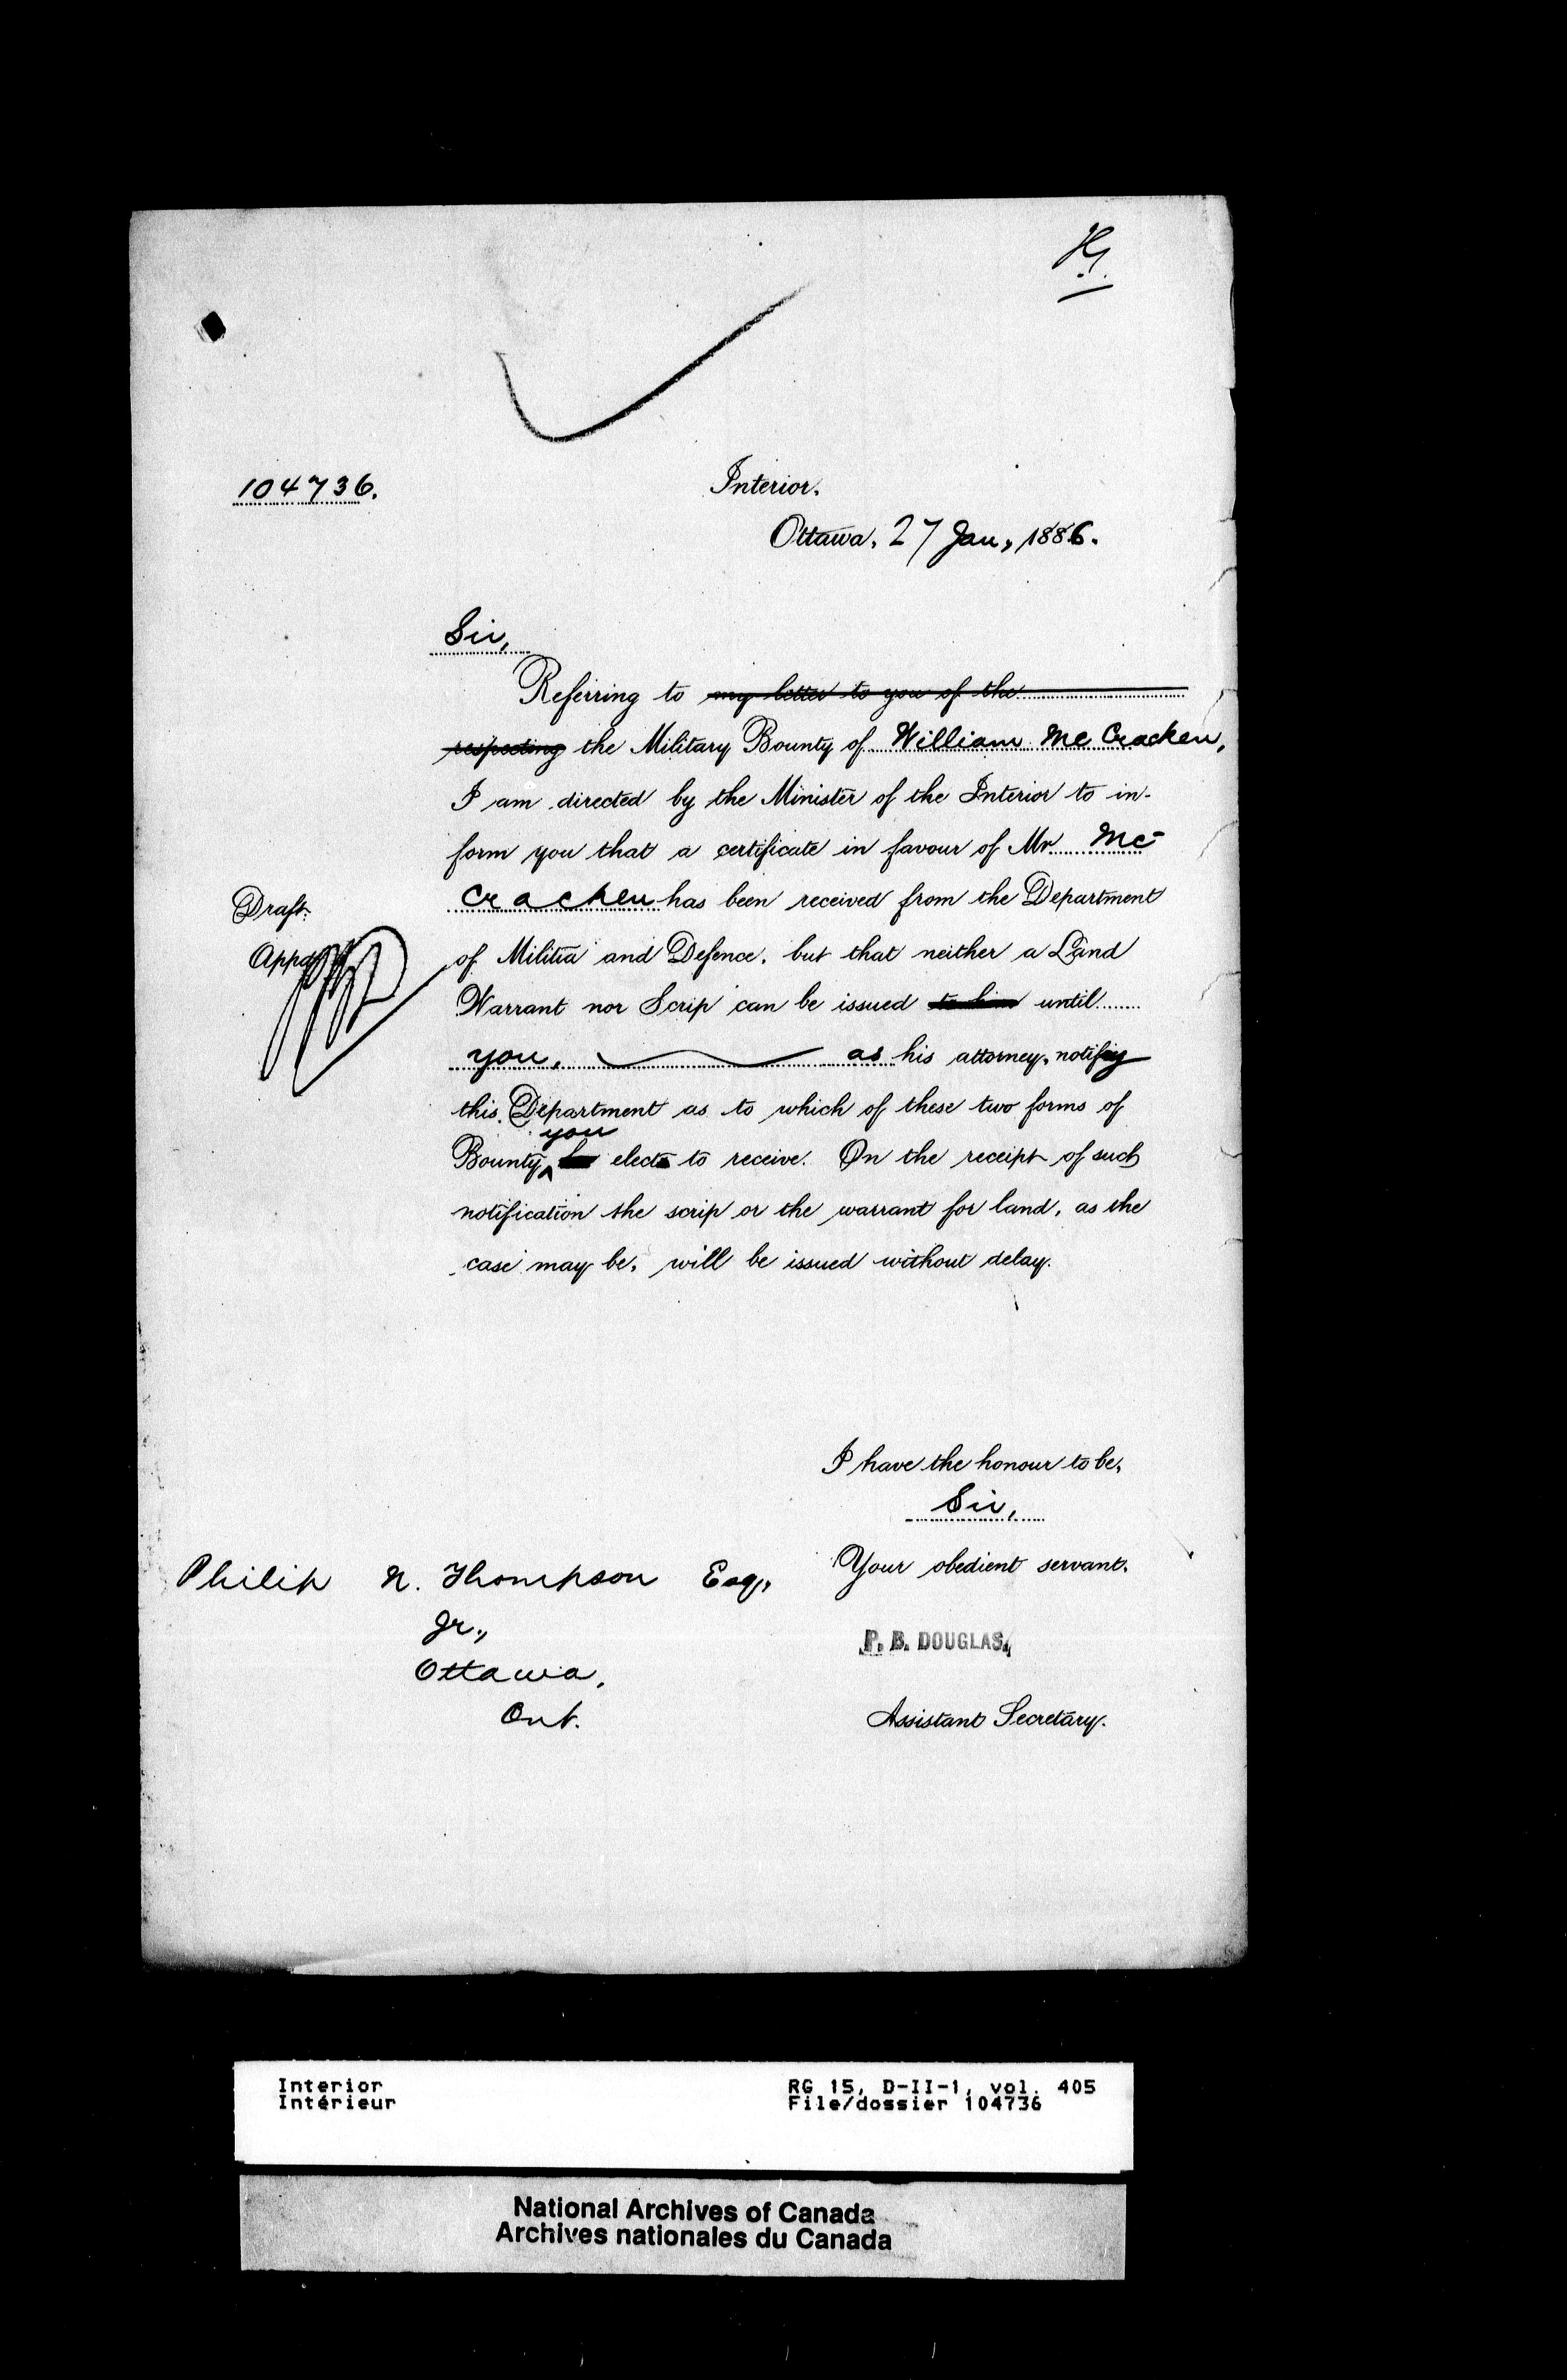 104736.
Interior.
Ottawa, 27 Jan, 1886.
Sir,
Referring to my letter to you of the
respecting the Military Bounty of William McCracken,
I am directed by the Minister of the Interior to in-
form you that a certificate in favour of Mr Mc-
Cracken has been received from the Department
of Militia and Defence, but that neither a Land
Warrant nor Scrip can be issued to him until
you, as his attorney, notify
this Department as to which of these two forms of
you
Bounty elects to receive. On the receipt of such
notification the scrip or the warrant for land, as the
case may be, will be issued without delay.
Draft.
Appd
I have the honour to be,
Sir,
Your obedient servant,
P. B. DOUGLAS,
Assistant Secretary.
Philip N. Thompson Esq,
Jr.,
Ottawa,
Ont.
Interior
Intérieur
RG 15, D-II-1, vol. 405
File/dossier 104736
National Archives of Canada
Archives nationales du Canada